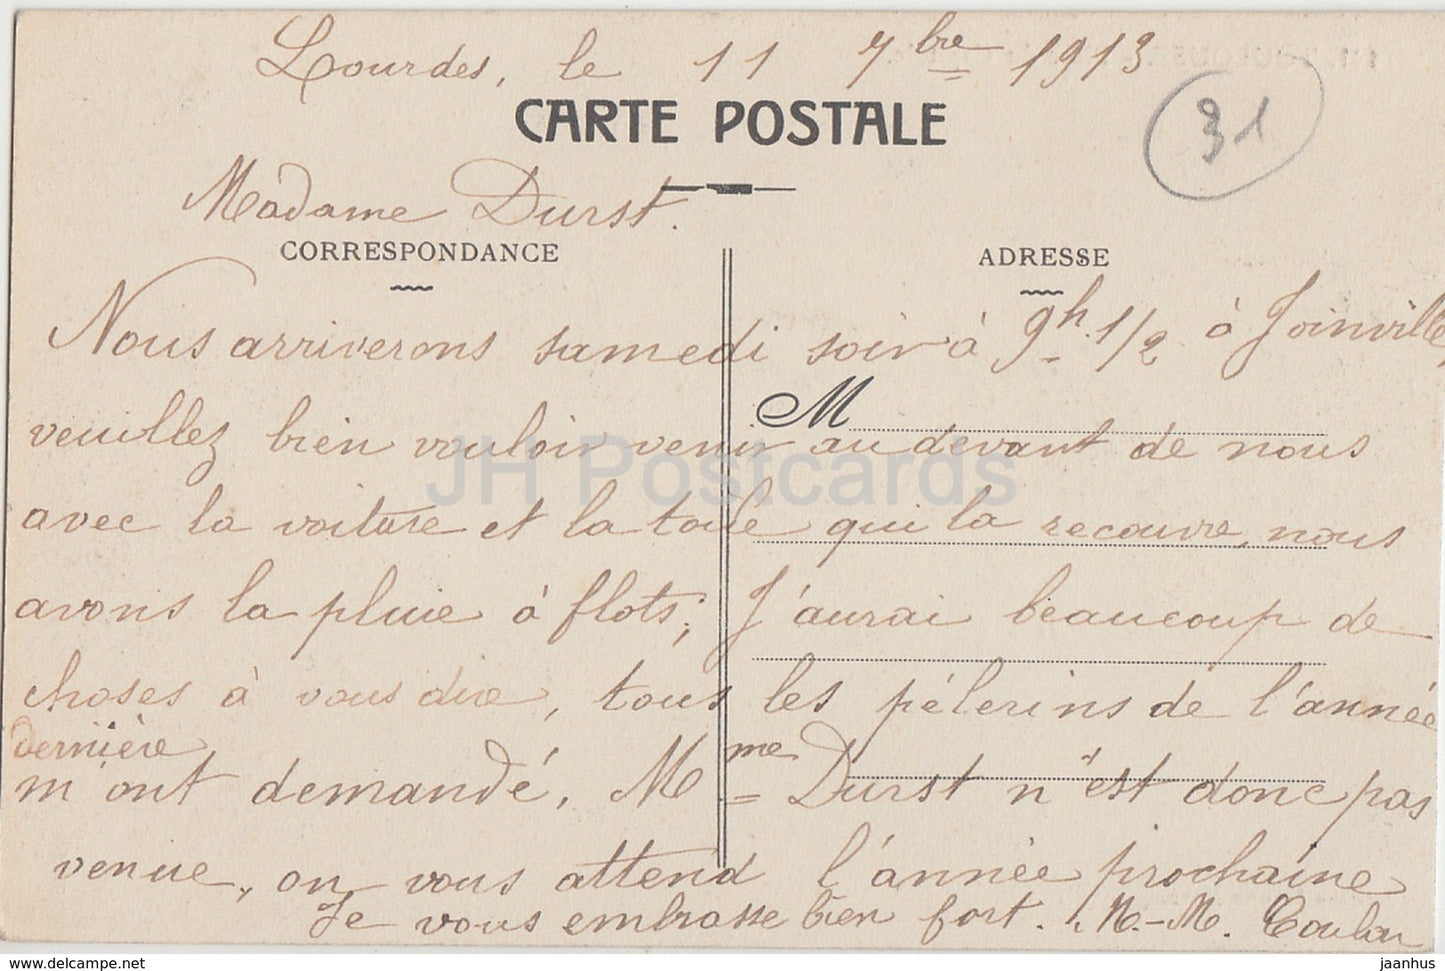 Lourdes, le 11 7bre 1913
CARTE POSTALE
31
Madame Durst.
CORRESPONDANCE
ADRESSE
Nous arriverons samedi soir à 9h. 1/2 à Joinville,
M
veuillez bien vouloir venir au devant de nous
avec la voiture et la toile qui la recouvre, nous
avons la pluie à flots; J'aurai beaucoup de
choses à vous dire, tous les pélerins de l'année
dernière
m'ont demandé, Mme Durst n'est donc pas
venue, on vous attend l'année prochaine
Je vous embrasse bien fort. M.-M. Coulon
JH Postcards
delcampe.net
jaanhus